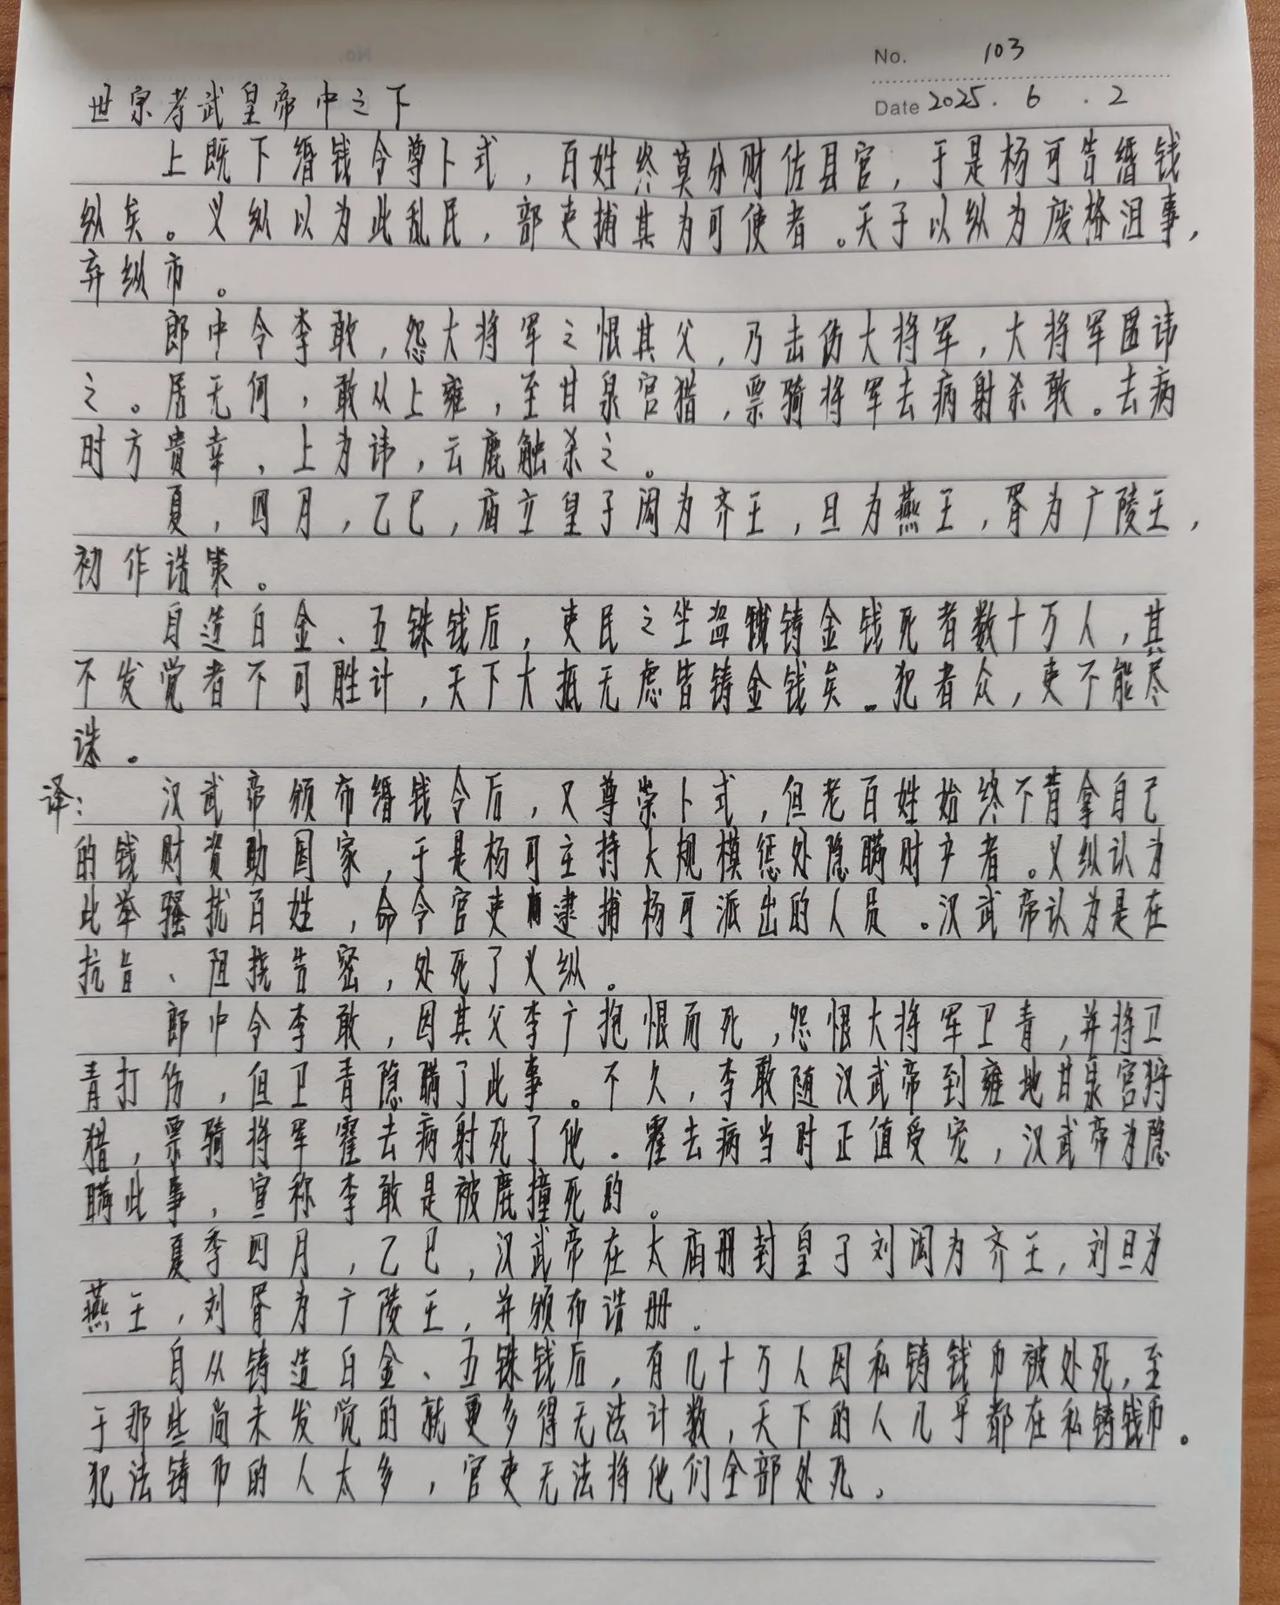 No. 103
Date 2025.6.2
世宗孝武皇帝中之下
上既下缗钱令尊卜式，百姓终莫分财佐县官，于是杨可告缗钱
纵矣。义纵以为此乱民，部吏捕其为可使者。天子以纵为废格沮事，
弃纵市。
郎中令李敢，怨大将军之恨其父，乃击伤大将军，大将军匿讳
之。居无何，敢从上雍，至甘泉宫猎，票骑将军去病射杀敢。去病
时方贵幸，上为讳，云鹿触杀之。
夏，四月，乙巳，庙立皇子闳为齐王，旦为燕王，胥为广陵王，
初作诰策。
自造白金、五铢钱后，吏民之坐盗铸金钱死者数十万人，其
不发觉者不可胜计，天下大抵无虑皆铸金钱矣。犯者众，吏不能尽
诛。
译：汉武帝颁布缗钱令后，又尊崇卜式，但老百姓始终不肯拿自己
的钱财资助国家，于是杨可主持大规模惩处隐瞒财产者。义纵认为
此举骚扰百姓，命令官吏逮捕杨可派出的人员。汉武帝认为是在
抗旨、阻挠告密，处死了义纵。
郎中令李敢，因其父李广抱恨而死，怨恨大将军卫青，并将卫
青打伤，但卫青隐瞒了此事。不久，李敢随汉武帝到雍地甘泉宫狩
猎，票骑将军霍去病射死了他。霍去病当时正值受宠，汉武帝为隐
瞒此事，宣称李敢是被鹿撞死的。
夏季四月，乙巳，汉武帝在太庙册封皇子刘闳为齐王，刘旦为
燕王，刘胥为广陵王，并颁布诰册.
自从铸造白金、五铢钱后，有几十万人因私铸钱币被处死，至
于那些尚未发觉的就更多得无法计数，天下的人几乎都在私铸钱币。
犯法铸币的人太多，官吏无法将他们全部处死。